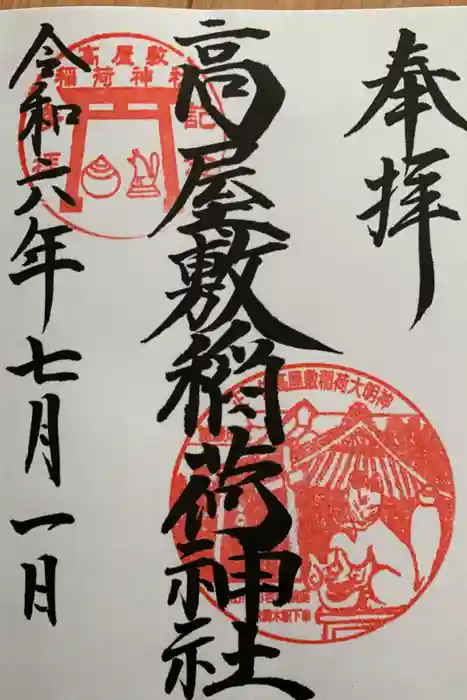 奉拝
高屋敷稲荷神社
令和六年七月一日
高屋敷
稲荷神社
高屋敷稲荷大明神